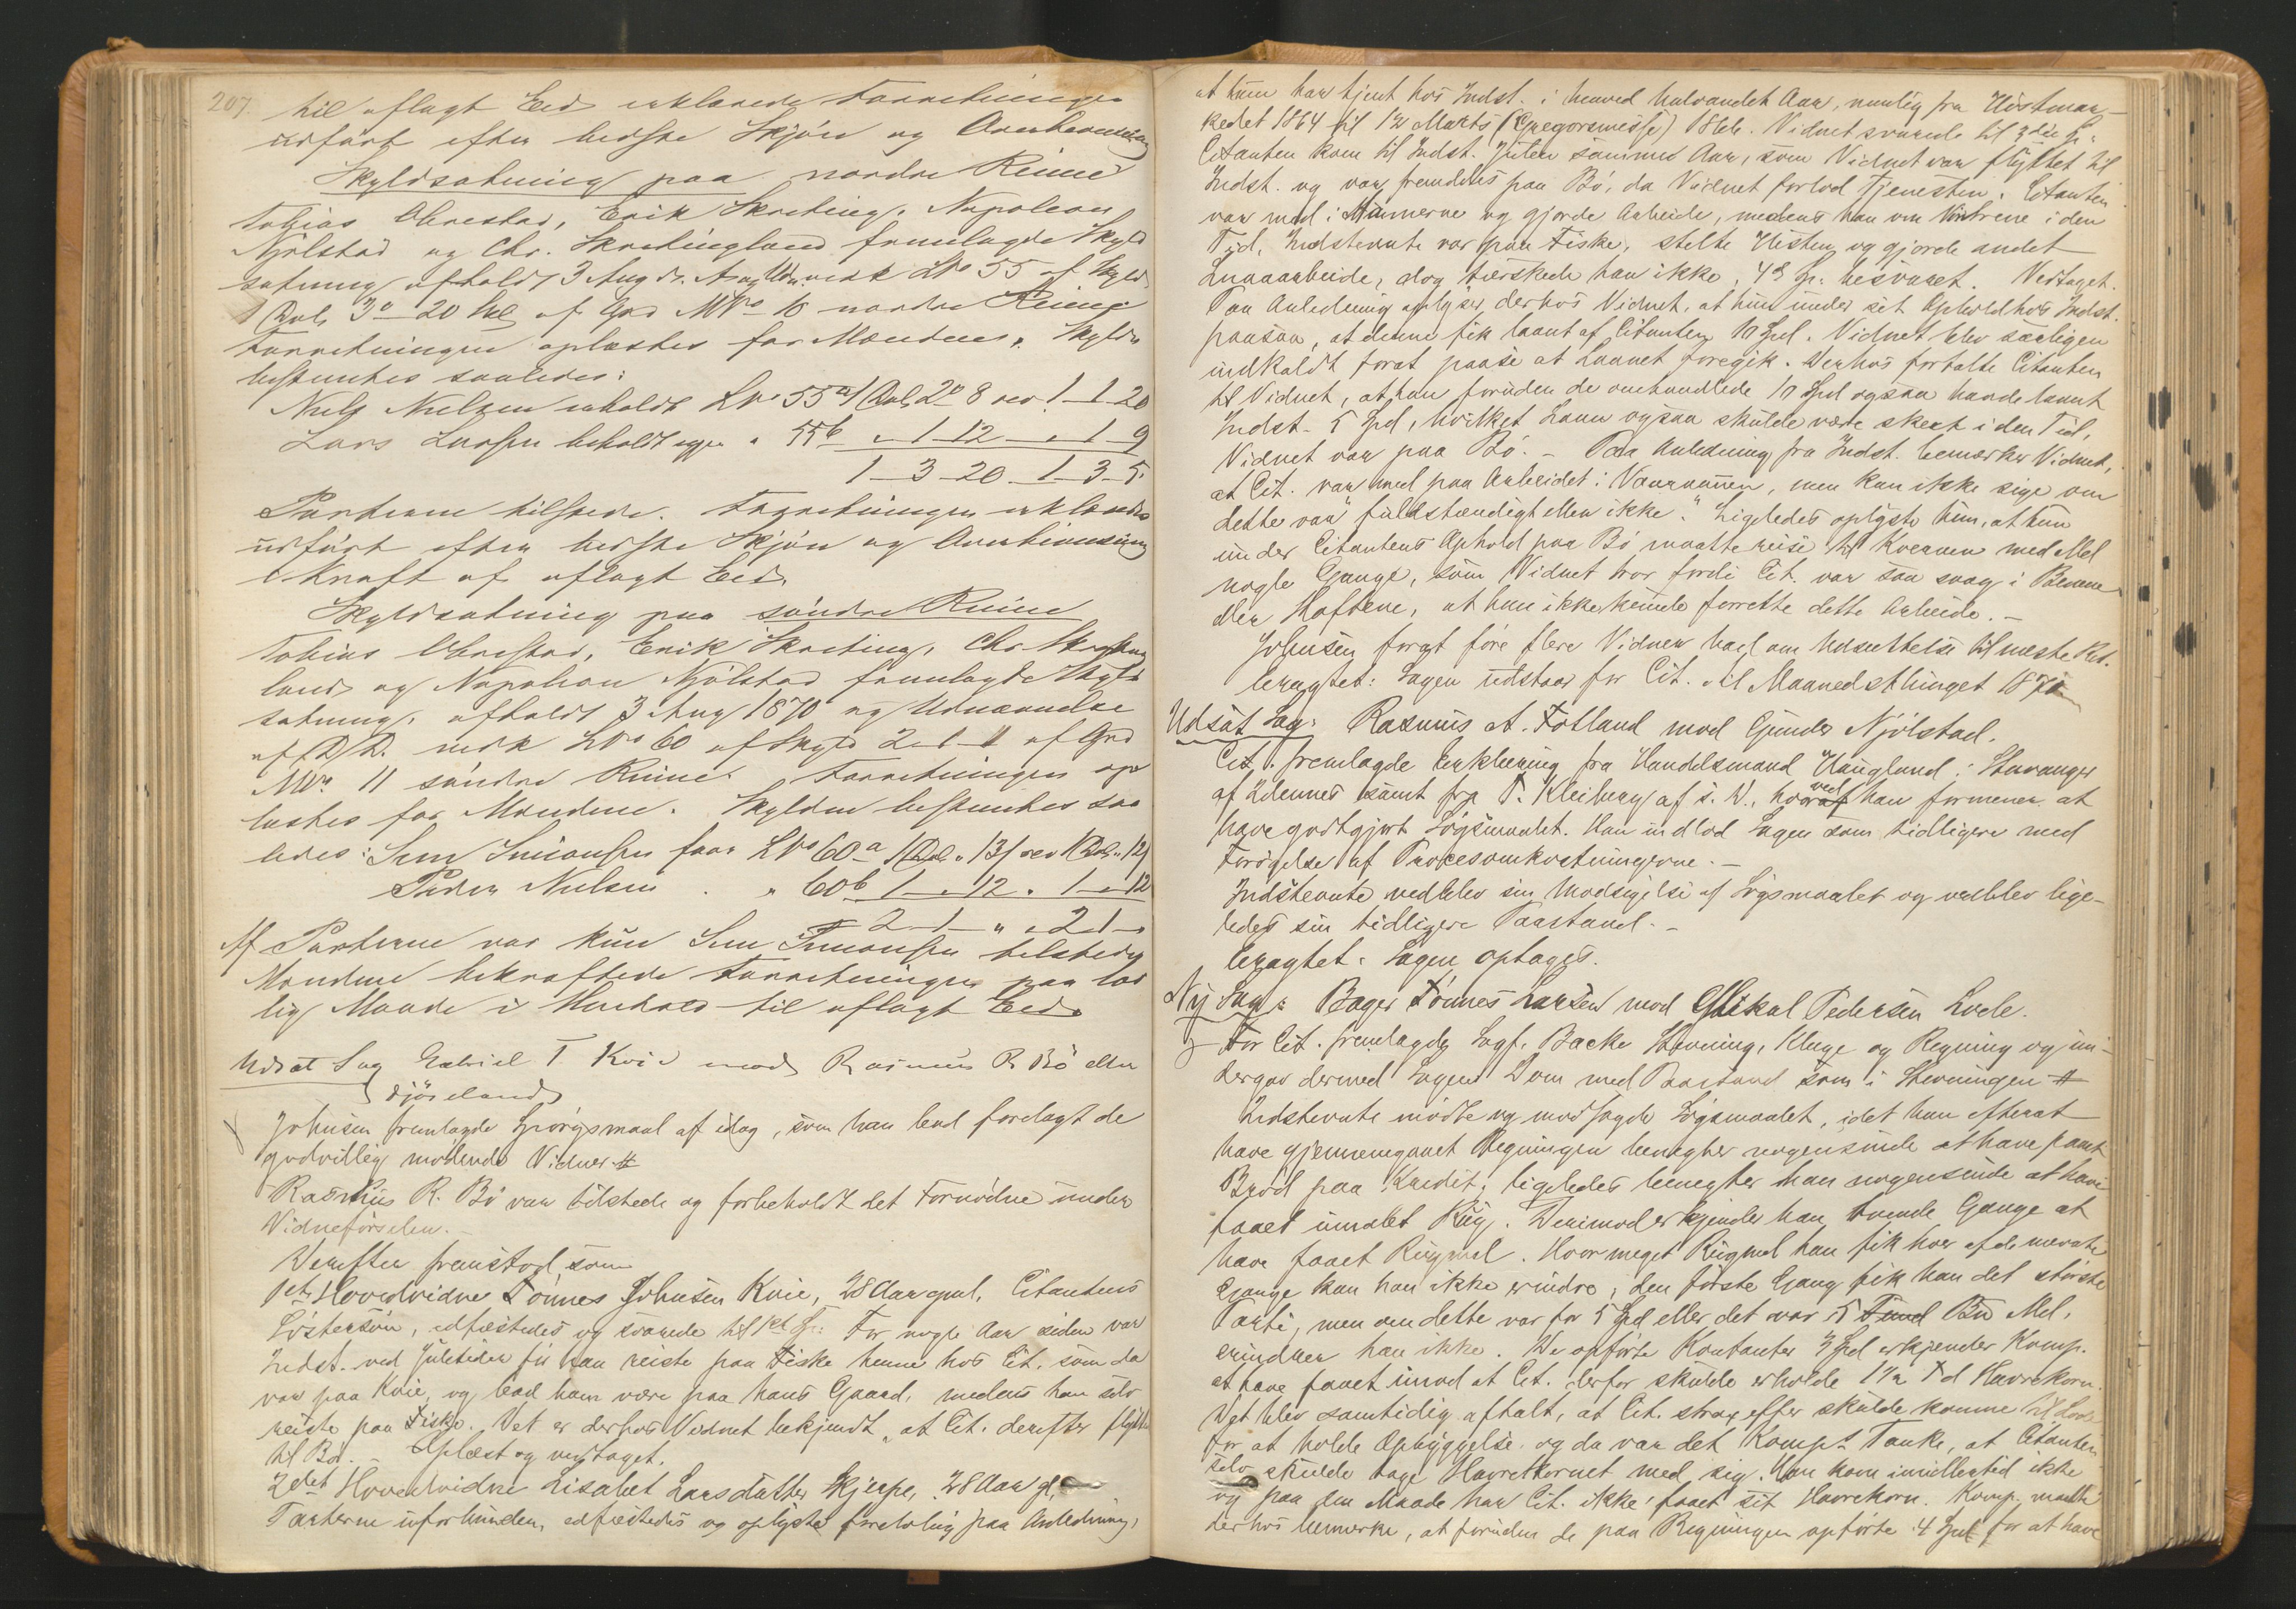 207.
til aflagt Eed erklærede Forretningen
udført efter bedste Skjøn og Overbeviisning
Skyldsætning paa nordre Reime
Tobias Obrestad, Erik Skretting, Napoleon
Njølstad og Chr. Skretingland fremlagde Skyld
sætning afholdt 3 Aug d. A. LNo 55 af Skyld
1 Dal. 3 20 Skl af Grd MNo 10 nordre Reime
Forretningen oplæstes for Mændene. Skylden
bestemtes saaledes:
Niels Nielsen erholdt LNo 55a 1 Dal. 2 8 rev. 1-1-20
Lars Larsen beholdt igjen " 55b " 1-12 " 1-9
1-3-20 1-3-5
Parterne tilstede. Forretningen erklæredes
udført efter bedste Skjøn og Overbeviisning
i Kraft af aflagt Eed.
Skyldsætning paa søndre Reime
Tobias Obrestad, Erik Skretting, Chr. Skretting
land og Napoleon Njølstad fremlagde Skyld
sætning, afholdt 3 Aug 1870 og Udnævnelse
af D. D. vedk LNo 60 af Skyld 2-1-" af Grd
MNo 11 søndre Reime. Forretningen op
læstes for Mændene. Skylden bestemtes saa
ledes: Sem Simonsen faar LNo 60a 1 Dal. " 13 rev 1 Dal. " 12
Peder Nielsen " 60b 1 " 12 " 1 " 12
2-1-" " 2-1-"
Af Parterne var kun Sem Simonsen tilstede
Mændene bekræftede Forretningen paa lov
lig Maade i Henhold til aflagt Eed.
Udsat Sag Gabriel T Kvie mod Rasmus R. Bø eller
Njøsland
Johnsen fremlagde Spørgsmaal af idag, som han bad forelagt de
godvillig mødende Vidner #
Rasmus R. Bø var tilstede og forbeholdt det Fornødne under
Vidneførselen.
Derefter fremstod som
1ste Hovedvidne Tønnes Johnsen Kvie, 28 Aar gml. Citantens
Søstersøn, edfæstedes og svarede til 1ste Sp: For nogle Aar siden var
Indst. ved Juletider før han reiste paa Fiske henne hos Cit. som da
var paa Kvie, og bad ham være paa hans Gaard, medens han selv
reiste paa Fiske. Det er derhos Vidnet bekjendt, at Cit. derefter flyttede
til Bø. – Oplæst og vedtaget.
2det Hovedvidne Lisabet Larsdatter Skjerpe, 28 Aar gl,
Parterne uforbunden, edfæstedes og oplyste foreløbig paa Anledning,
at hun har tjent hos Indst. i henved halvandet Aar, nemlig fra Høstmar-
kedet 1864 til 12 Marts (Gregorsmesse) 1866. Vidnet svarede til 3die Sp:
Citanten kom til Indst. Julen samme Aar, som Vidnet var flyttet til
Indst. og var fremdeles paa Bø, da Vidnet forlod Tjenesten. Citanten
var med i Aannerne og gjorde Arbeide, medens han om Vintrene i den
Tid, Indstevnte var paa Fiske, stelte Hesten og gjorde andet
Smaaarbeide, dog tærskede han ikke. 4de Sp: besvaret. Vedtaget.
Paa Anledning oplyser derhos Vidnet, at hun under sit Ophold hos Indst.
paasaa, at denne fik laant af Citanten 10 Spd. Vidnet blev særligen
indkaldt forat paasé at Laanet foregik. Derhos fortalte Citanten
til Vidnet, at han foruden de omhandlede 10 Spd ogsaa havde laant
Indst. 5 Spd, hvilket Laan ogsaa skulde være skeet i den Tid,
Vidnet var paa Bø. – Paa Anledning fra Indst. bemærker Vidnet,
at Cit. var med paa Arbeidet i Vaaraannen, men kan ikke sige om
dette var "fuldstændigt eller ikke." Ligeledes oplyste hun, at hun
under Citantens Ophold paa Bø maatte reise til Kvernen med Mel
nogle Gange, som Vidnet tror fordi Cit. var saa svag i Benene
eller Hofterne, at han ikke kunde forrette dette Arbeide. –
Johnsen forat føre flere Vidner bad om Udsættelse til næste Ret.
Eragtet: Sagen udstaar for Cit. til Maanedsthinget 1870
Udsat Sag: Rasmus A. Fotland mod Gunder Njølstad.
Cit. fremlagde Erklæring fra Handelsmand Haugland i Stavanger
af 2dennes samt fra T. Kleiberg af s. D., hvorved han formener at
have godtgjort Søgsmaalet. Han indlod Sagen som tidligere med
Forøgelse af Procesomkostningerne. –
Indstevnte vedblev sin Modsigelse af Søgsmaalet og vedblev lige-
ledes sin tidligere Paastand. –
Eragtet: Sagen optages.
Ny Sag: Bager Tønnes Larsen mod Mikal Pedersen Lode.
For Cit. fremlagde Sagf. Backe Stevning, Klage og Regning og un-
dergav dermed Sagen Dom med Paastand som i Stevningen #
Indstevnte mødte og modsagde Søgsmaalet, idet han efterat
have gjennemgaaet Regningen benegter nogensinde at have faaet
Brød paa Kredit; ligeledes benegter han nogensinde at have
faaet umalet Rug. Derimod erkjender han tvende Gange at
have faaet Rugmel. Hvor meget Rugmel han fik hver af de nævnte
Gange kan han ikke erindre, den første Gang fik han det største
Parti, men om dette var for 5 Spd eller det var 5 Bd Mel,
erindrer han ikke. De opførte Kontanter 3 Spd erkjender Komp.
at have faaet imod at Cit. derfor skulde erholde 1½ Td Havrekorn.
Det blev samtidig aftalt, at Cit. strax efter skulde komme til Lode
for at holde Opbyggelse og da var det Komps Tanke, at Citanten
selv skulde tage Havrekornet med sig. Han kom imidlertid ikke
og paa den Maade har Cit. ikke faaet sit Havrekorn. Komp. maatte
derhos bemærke, at foruden de paa Regningen opførte 4 Spd for at have